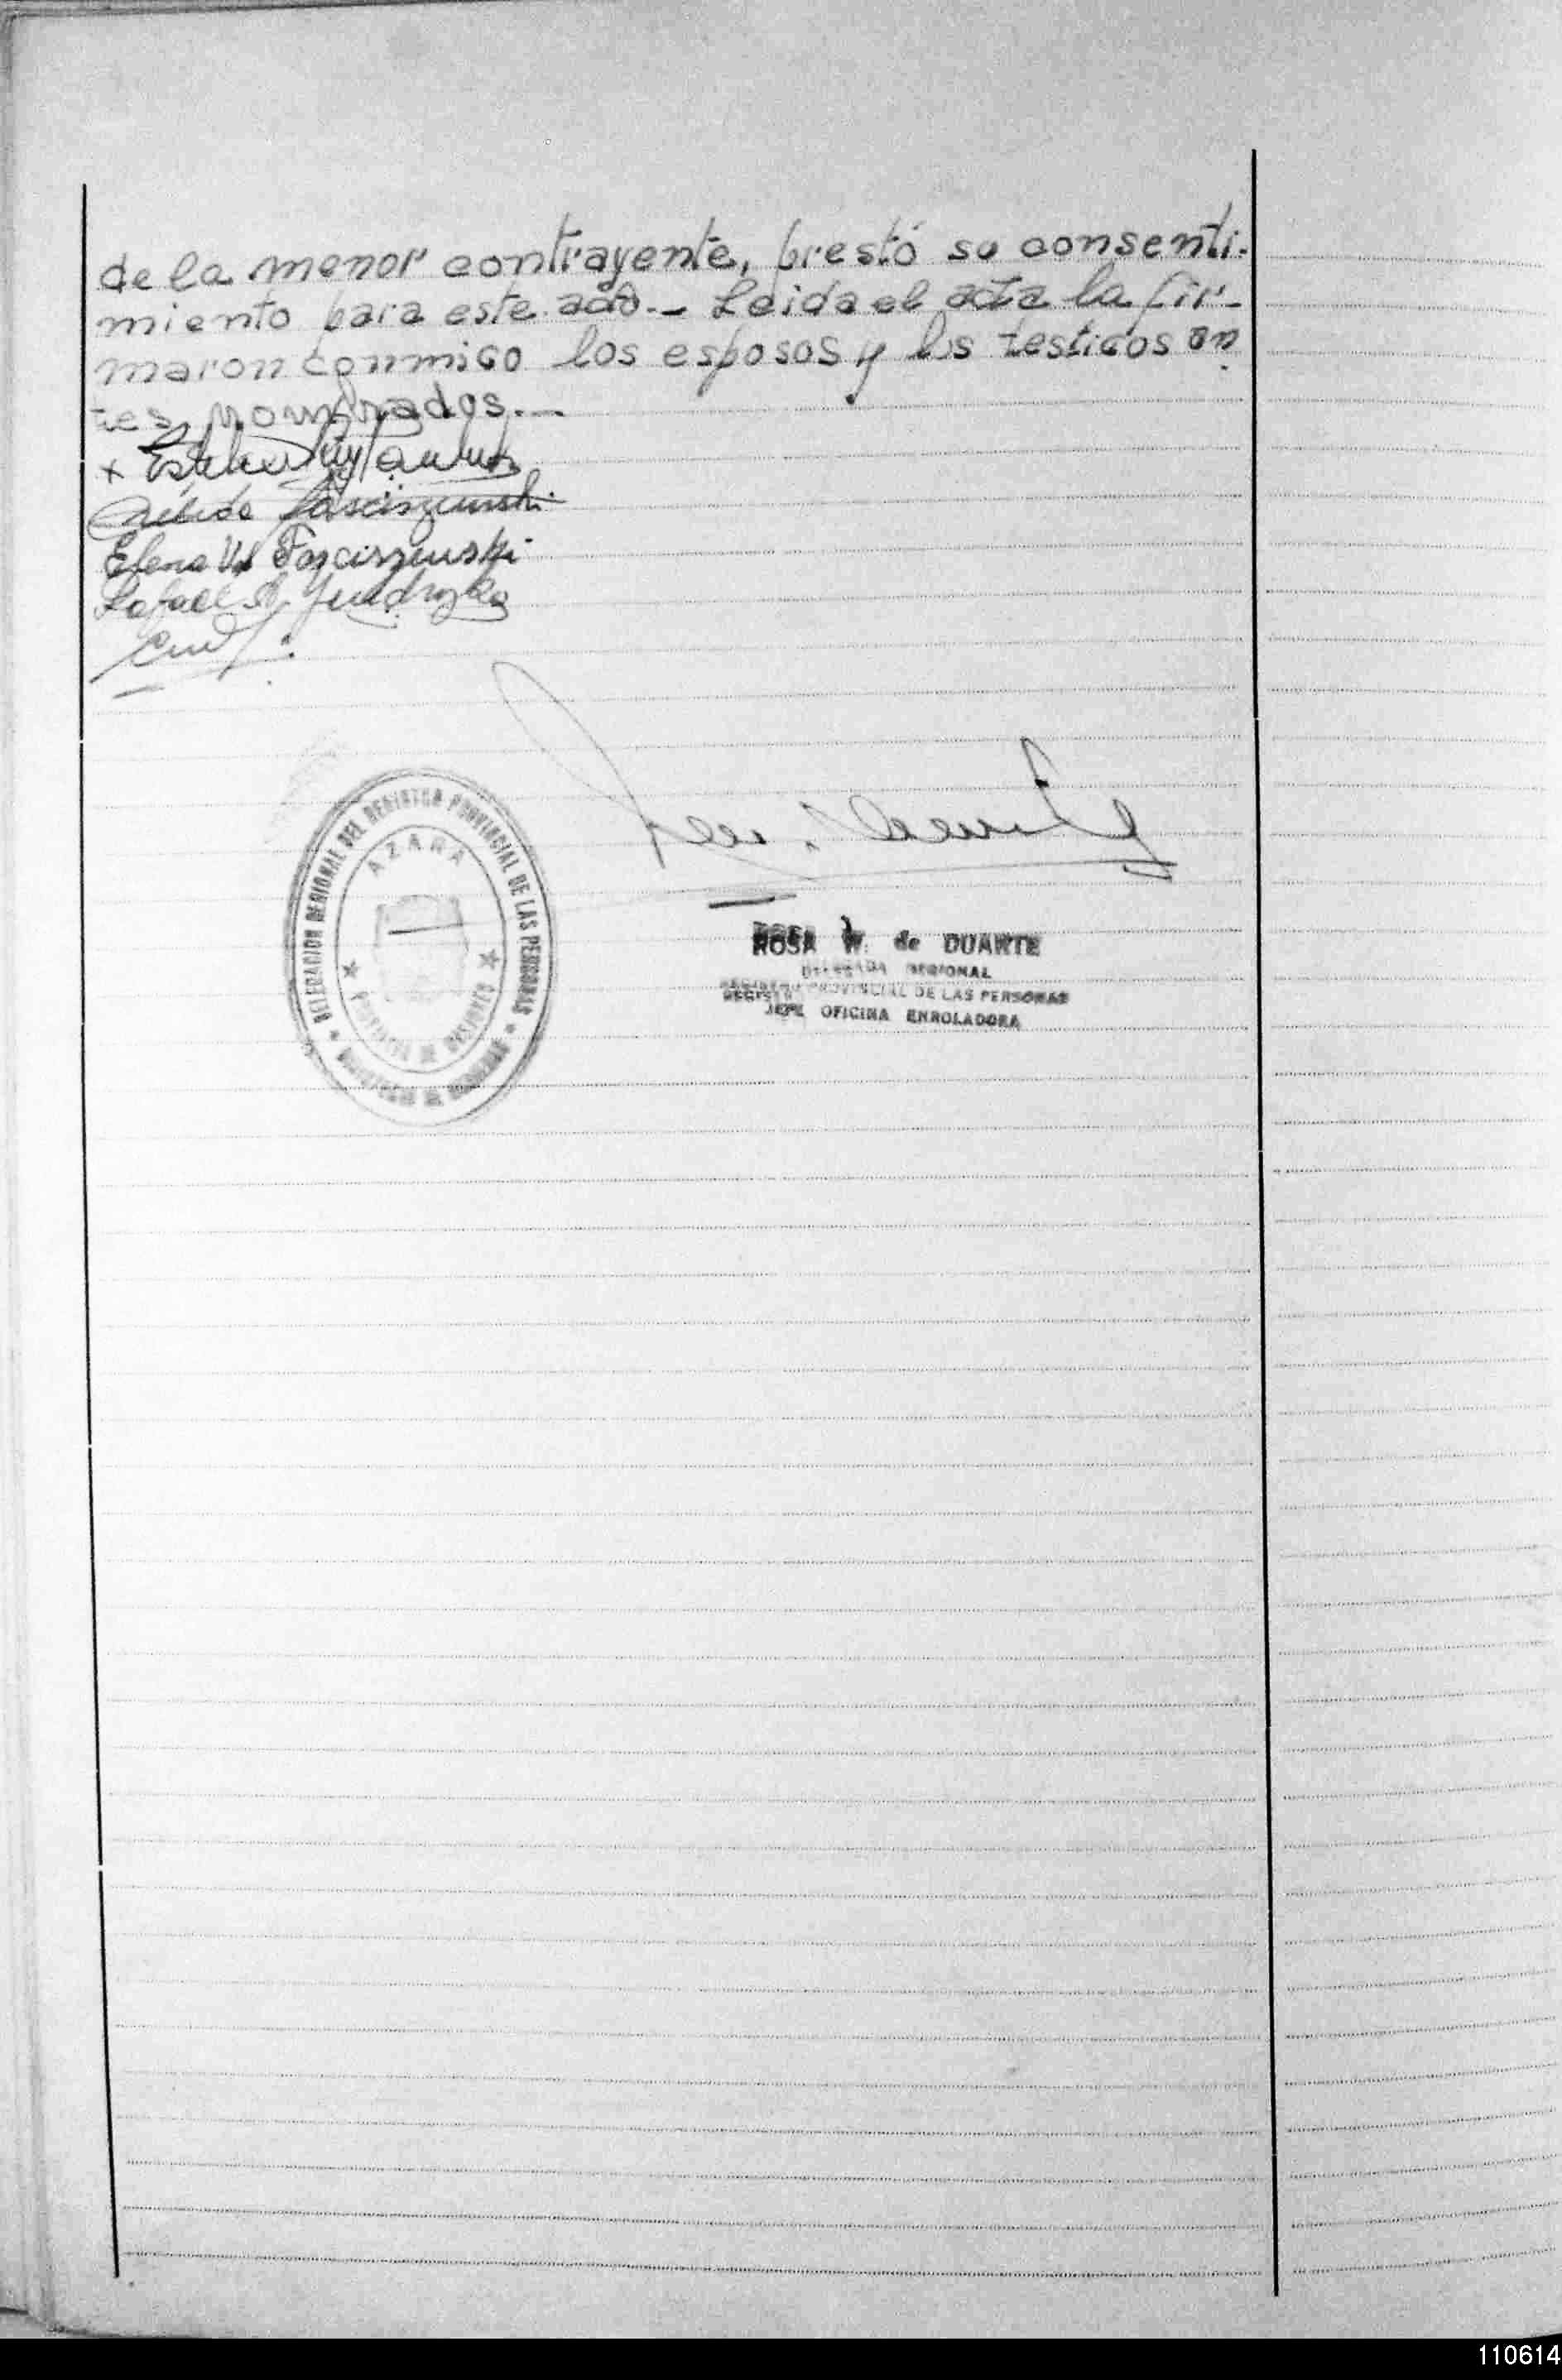 de la menor contrayente, prestó su consenti-
miento para este acto.- Leida el acta la fir-
maron conmigo los esposos y los testigos an
tes nombrados.-
x
Elena Fasciszewski
Rafael
DELEGACION REGIONAL DEL REGISTRO PROVINCIAL DE LAS PERSONAS
AZARA
PROVINCIA DE MISIONES
ROSA W. de DUARTE
DELEGADA REGIONAL
REGISTRO PROVINCIAL DE LAS PERSONAS
JEFE OFICINA ENROLADORA
110614